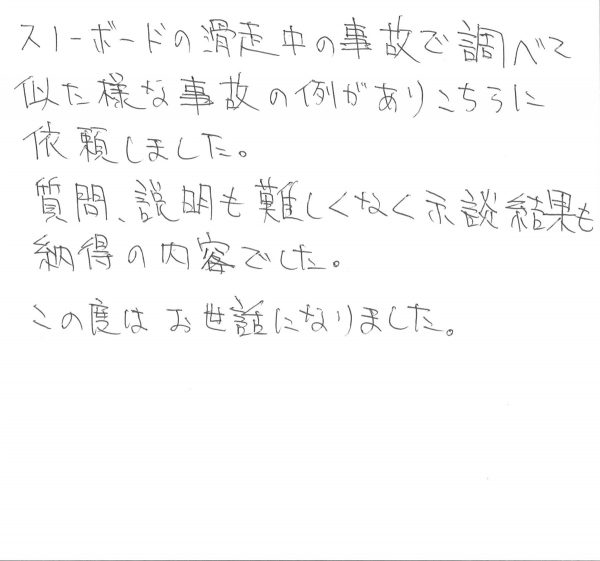 スノーボードの滑走中の事故で調べて
似た様な事故の例がありこちらに
依頼しました。
質問、説明も難しくなく示談結果も
納得の内容でした。
この度は お世話になりました。